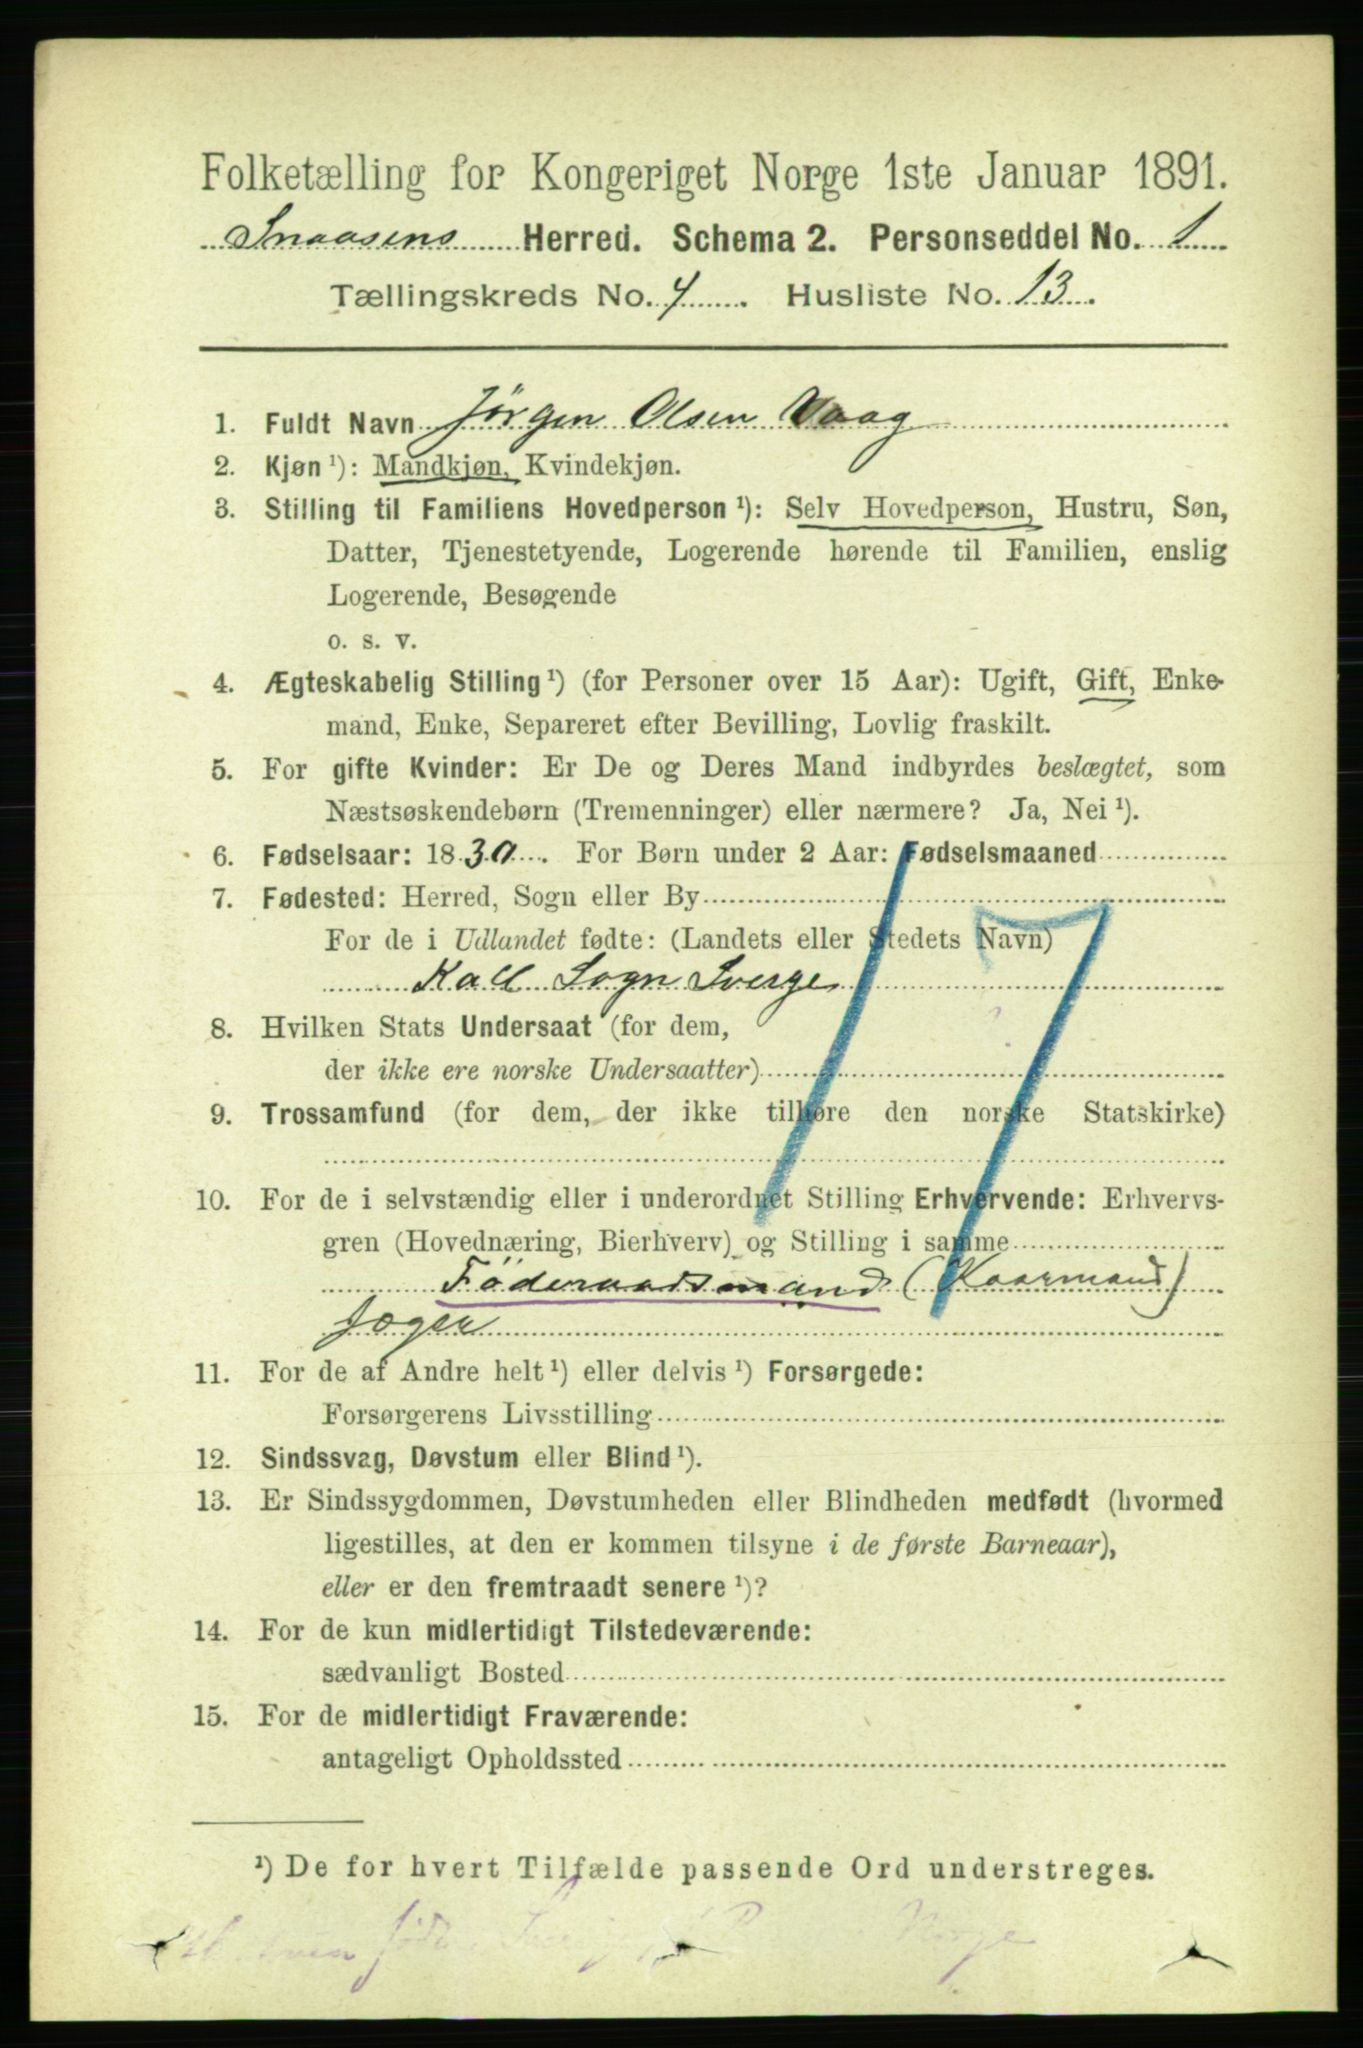 Folketælling for Kongeriget Norge 1ste Januar 1891.
Snaasens Herred. Schema 2. Personseddel No. 1
Tællingskreds No. 4. Husliste No. 13.
1. Fuldt Navn Jörgen Olsen Vaag
2. Kjøn ¹): Mandkjøn, Kvindekjøn.
3. Stilling til Familiens Hovedperson ¹): Selv Hovedperson, Hustru, Søn,
Datter, Tjenestetyende, Logerende hørende til Familien, enslig
Logerende, Besøgende
o. s. v.
4. Ægteskabelig Stilling ¹) (for Personer over 15 Aar): Ugift, Gift, Enke-
mand, Enke, Separeret efter Bevilling, Lovlig fraskilt.
5. For gifte Kvinder: Er De og Deres Mand indbyrdes beslægtet, som
Næstsøskendebørn (Tremenninger) eller nærmere? Ja, Nei ¹).
6. Fødselsaar: 1830. For Børn under 2 Aar: Fødselsmaaned
7. Fødested: Herred, Sogn eller By
For de i Udlandet fødte: (Landets eller Stedets Navn)
Kall Sogn Sverge
8. Hvilken Stats Undersaat (for dem,
der ikke ere norske Undersaatter)
9. Trossamfund (for dem, der ikke tilhøre den norske Statskirke)
17
10. For de i selvstændig eller i underordnet Stilling Erhvervende: Erhvervs-
gren (Hovednæring, Bierhverv) og Stilling i samme
Föderaadsmand (Kaarmand)
Jæger
11. For de af Andre helt ¹) eller delvis ¹) Forsørgede:
Forsørgerens Livsstilling
12. Sindssvag, Døvstum eller Blind ¹).
13. Er Sindssygdommen, Døvstumheden eller Blindheden medfødt (hvormed
ligestilles, at den er kommen tilsyne i de første Barneaar),
eller er den fremtraadt senere ¹)?
14. For de kun midlertidigt Tilstedeværende:
sædvanligt Bosted
15. For de midlertidigt Fraværende:
antageligt Opholdssted
¹) De for hvert Tilfælde passende Ord understreges.
Norge